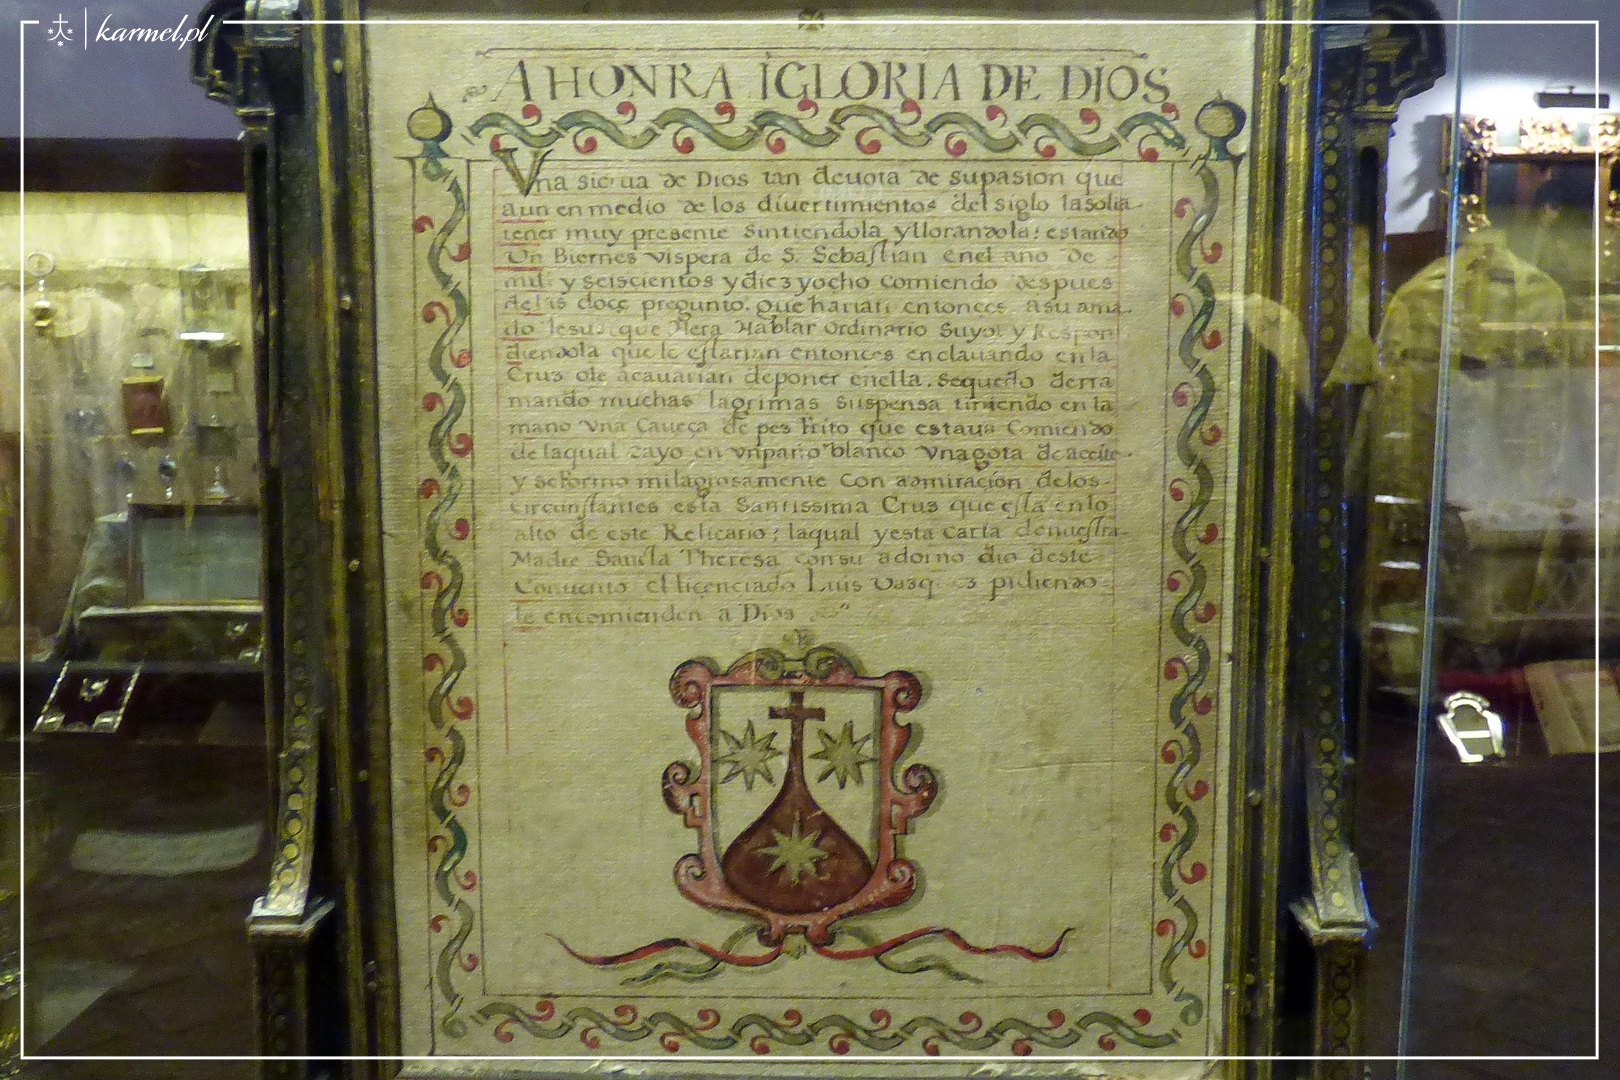 karmel.pl
A HONRA IGLORIA DE DIOS
Vna sierua de Dios tan deuota de supasion que
aun en medio de los diuertimientos del siglo lasolia
tener muy presente sintiendola yllorandola; estando
Un Biernes vispera de S. Sebastian enel ano de
mil y seiscientos ydiez yocho comiendo despues
delas doce pregunto. que harian entonces. asu ama
do Iesus que Hera Hablar ordinario Suyo; y Respon
diendola que le estarian entonces enclauando en la
Cruz ole acauarian deponer enella. sequedo derra
mando muchas lagrimas suspensa tiniendo en la
mano vna Caueça de pes frito que estaua Comiendo
de laqual cayo en vnpaño blanco vnagota de aceite
y seformo milagrosamente con admiración delos
circunstantes esta Santissima Cruz que esta enlo
alto de este Relicario; laqual yesta carta denuestra
Madre Sancta Theresa consu adorno dio deste
Conuento el licenciado Luis Vazquez pidiendo
le encomienden a Dios